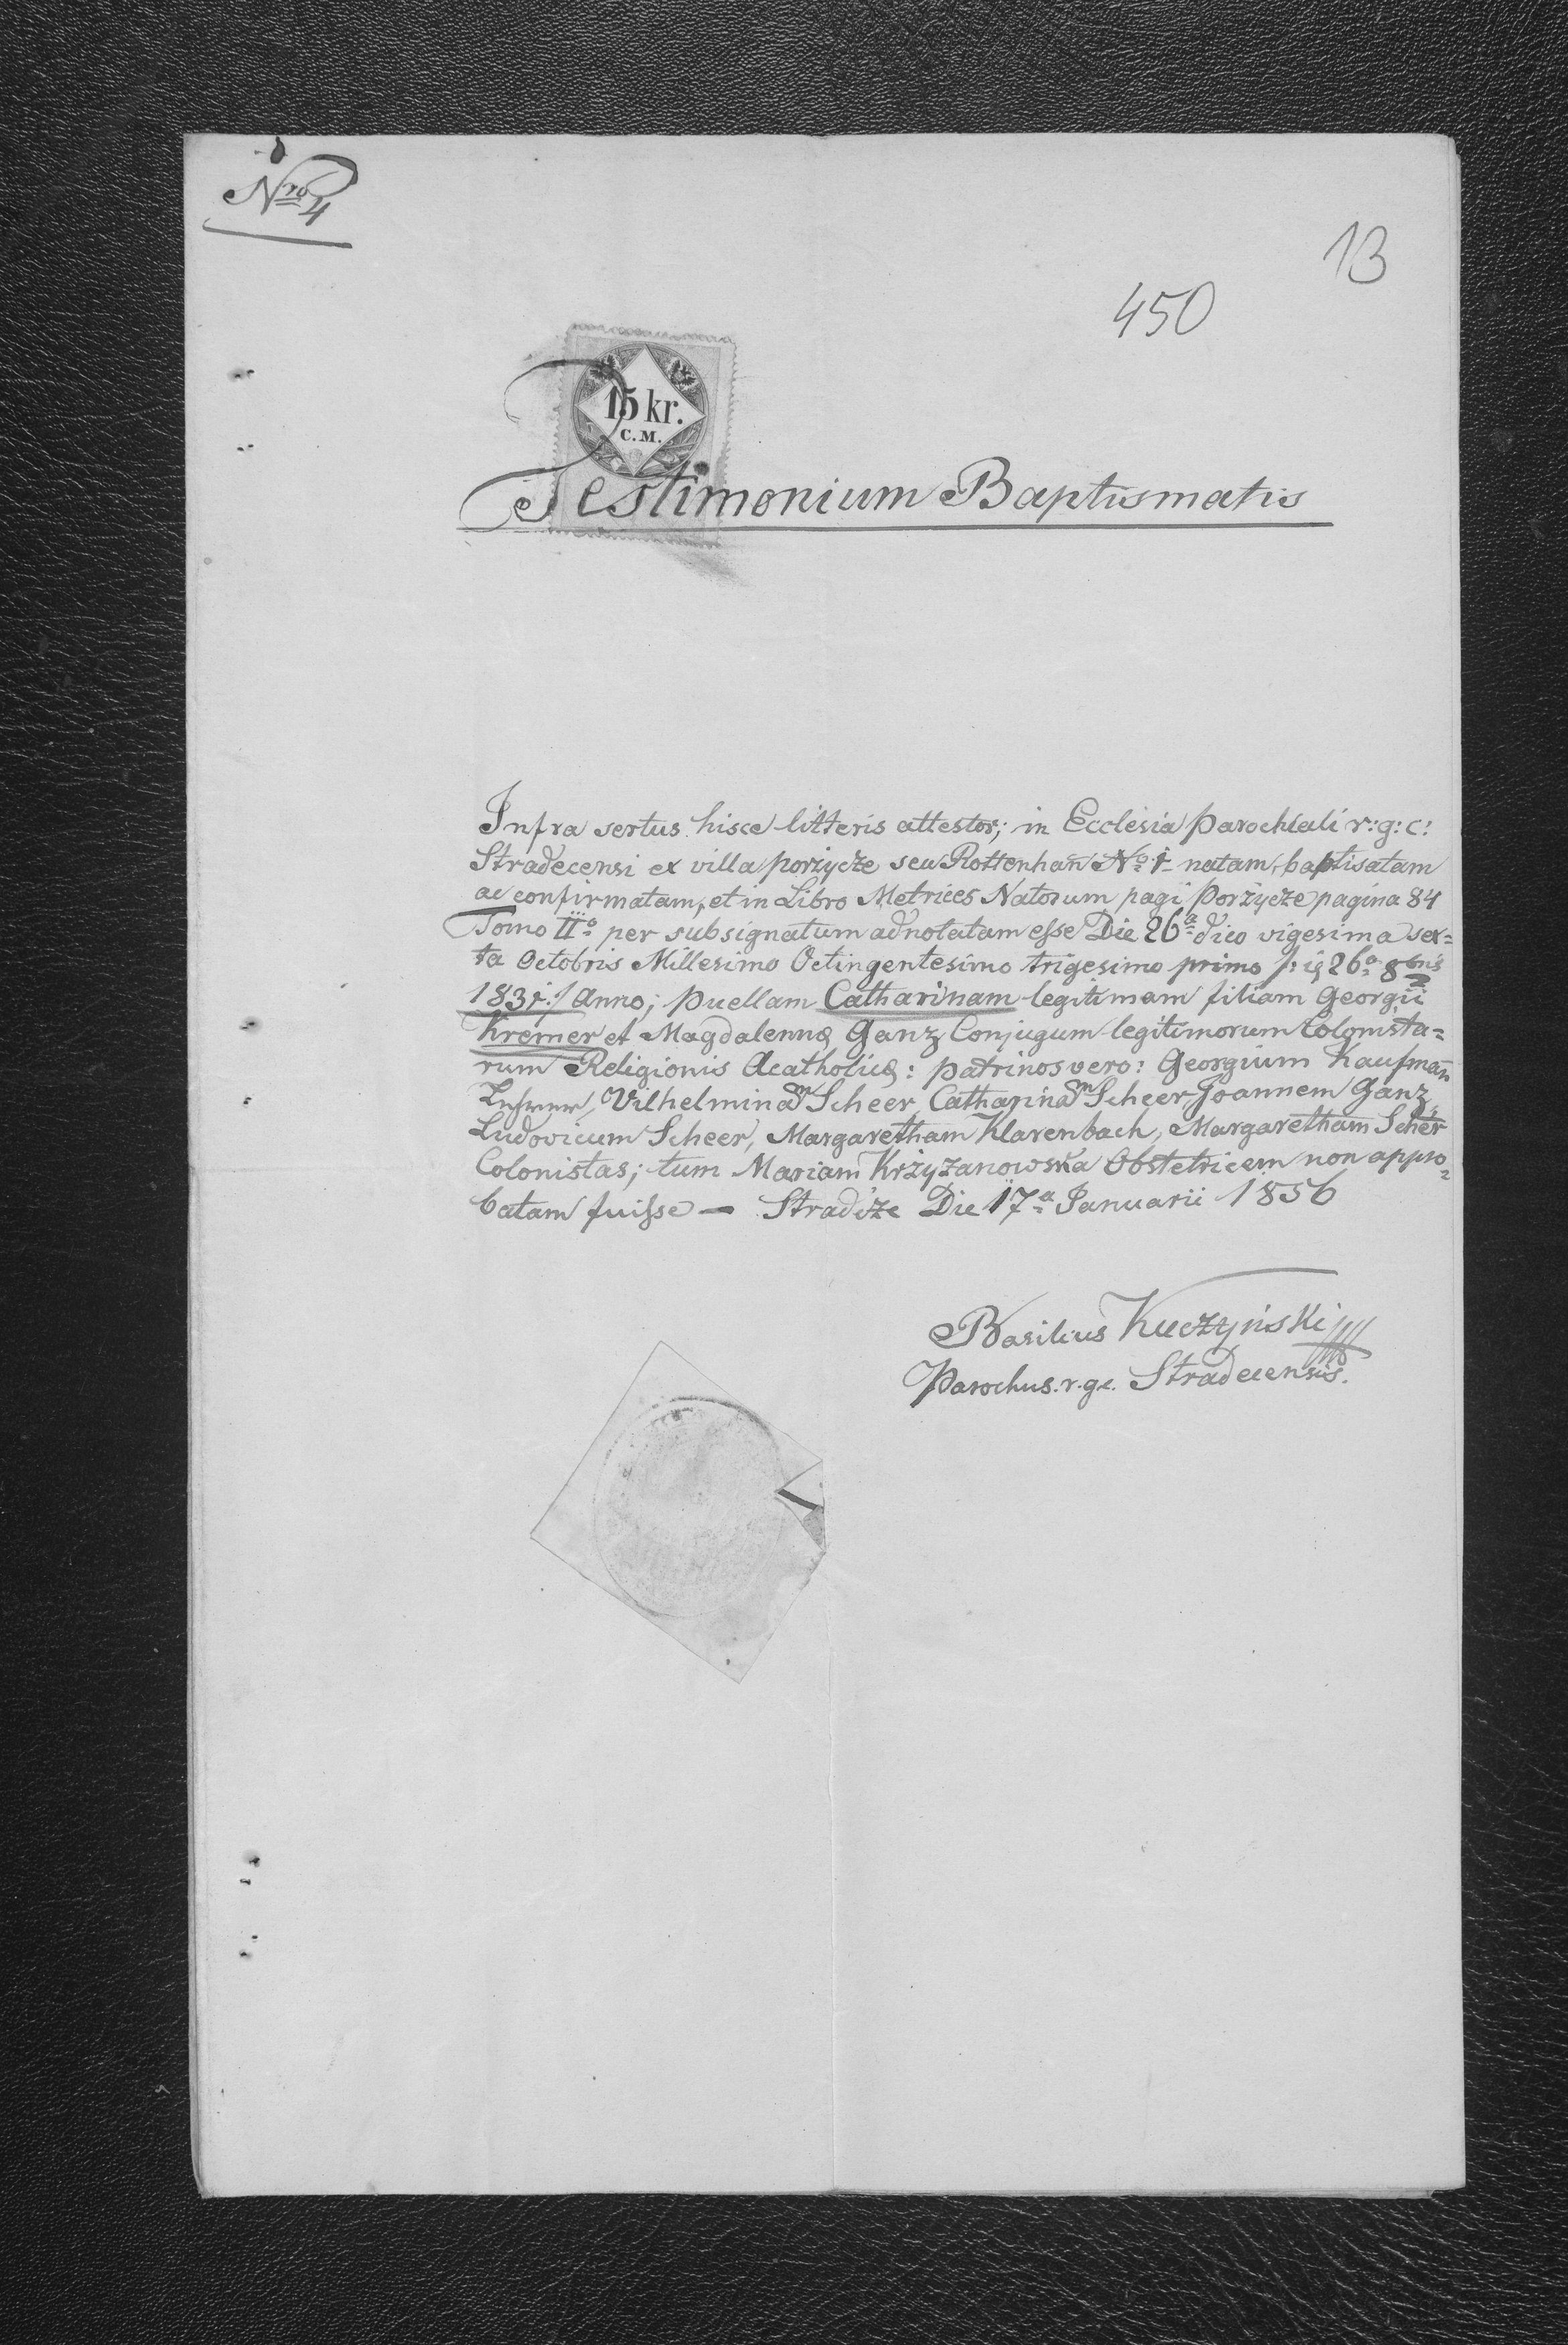 Nro 4
13
450
15 kr.
C.M.
Testimonium Baptismatis
Infra sertus hisce litteris attestor; in Ecclesia parochiali r: g: c:
Stradecensi ex villa porzycze seu Rottenhan No 1 natam, baptisatam
ac confirmatam, et in Libro Metrices Natorum pagi Porzycze pagina 84
Tomo IIo per subsignatum adnotatam esse Die 26a dico vigesima sex=
ta Octobris Millesimo Octingentesimo trigesimo primo /: ig 26a 8bris
1831 :/ Anno; puellam Catharinam legitimam filiam Georgii
Kremer et Magdalennæ Ganz Conjugum legitimorum Colonista=
rum Religionis Acatholicæ: patrinos vero: Georgium Kaufman
Vilhelminam Scheer, Catharinam Scheer, Joannem Ganz,
Ludovicum Scheer, Margaretham Klarenbach, Margaretham Scher
Colonistas; tum Mariam Krzyzanowska Obstetricem non appro=
batam fuisse — Stradcze Die 17a Januarii 1856
Basilius Kuczyński
Parochus r. g. c. Stradecensis.